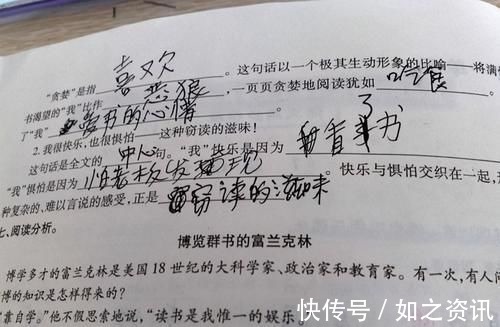 “贪婪”是指喜欢。这句话以一个极其生动形象的比喻——将满
书渴望的“我”比作恶狼，一页页贪婪地阅读犹如吃食
了“我”爱书的心情
2. 我很快乐,也很惧怕——这种窃读的滋味!
这句话是全文的中心句。“我”快乐是因为看了书
“我”惧怕是因为怕老板发现。快乐与惧怕交织在一起,形
种复杂的、难以言说的感受,正是窃读的滋味
七、阅读分析。
博览群书的富兰克林
博学多才的富兰克林是美国 18 世纪的大科学家、政治家和教育家。有一次,有人问
博的知识是怎样得来的?
“靠自学。”他不假思索地说,“读书是我惟一的娱乐。
快传号/如之资讯